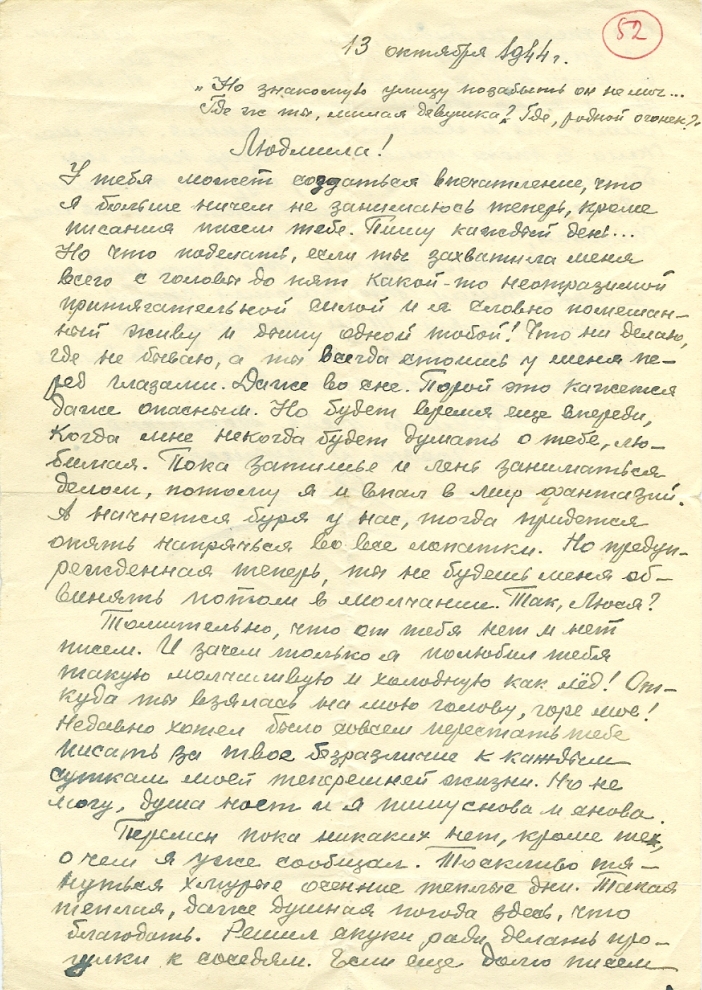 52
13 октября 1944 г.
„Но знакомую улицу позабыть он не мог...
Где ж ты, милая девушка? Где, родной огонек?"
Людмила!
У тебя может создаться впечатление, что
я больше ничем не занимаюсь теперь, кроме
писания писем тебе. Пишу каждый день...
Но что поделать, если ты захватила меня
всего с головы до пят какой-то неотразимой
притягательной силой и я словно помешан-
ный живу и дышу одной тобой! Что ни делаю,
где не бываю, а ты всегда стоишь у меня пе-
ред глазами. Даже во сне. Порой это кажется
даже опасным. Но будет время еще впереди,
когда мне некогда будет думать о тебе, лю-
бимая. Пока затишье и лень заниматься
делом, потому я и впал в мир фантазий.
А начнется буря у нас, тогда придется
опять напрячься во все лопатки. Но предуп-
режденная теперь, ты не будешь меня об-
винять потом в молчании. Так, Люся?
Томительно, что от тебя нет и нет
писем. И зачем только я полюбил тебя
такую молчаливую и холодную как лёд! От-
куда ты взялась на мою голову, горе мое!
Недавно хотел было совсем перестать тебе
писать за твое безразличие к каждым
суткам моей теперешней жизни. Но не
могу, душа ноет и я пишу снова и снова.
Перемен пока никаких нет, кроме тех,
о чем я уже сообщал. Тоскливо тя-
нуться хмурые осенние теплые дни. Такая
теплая, даже душная погода здесь, что
благодать. Решил скуки ради делать про-
гулки к соседям. Если еще долго писем